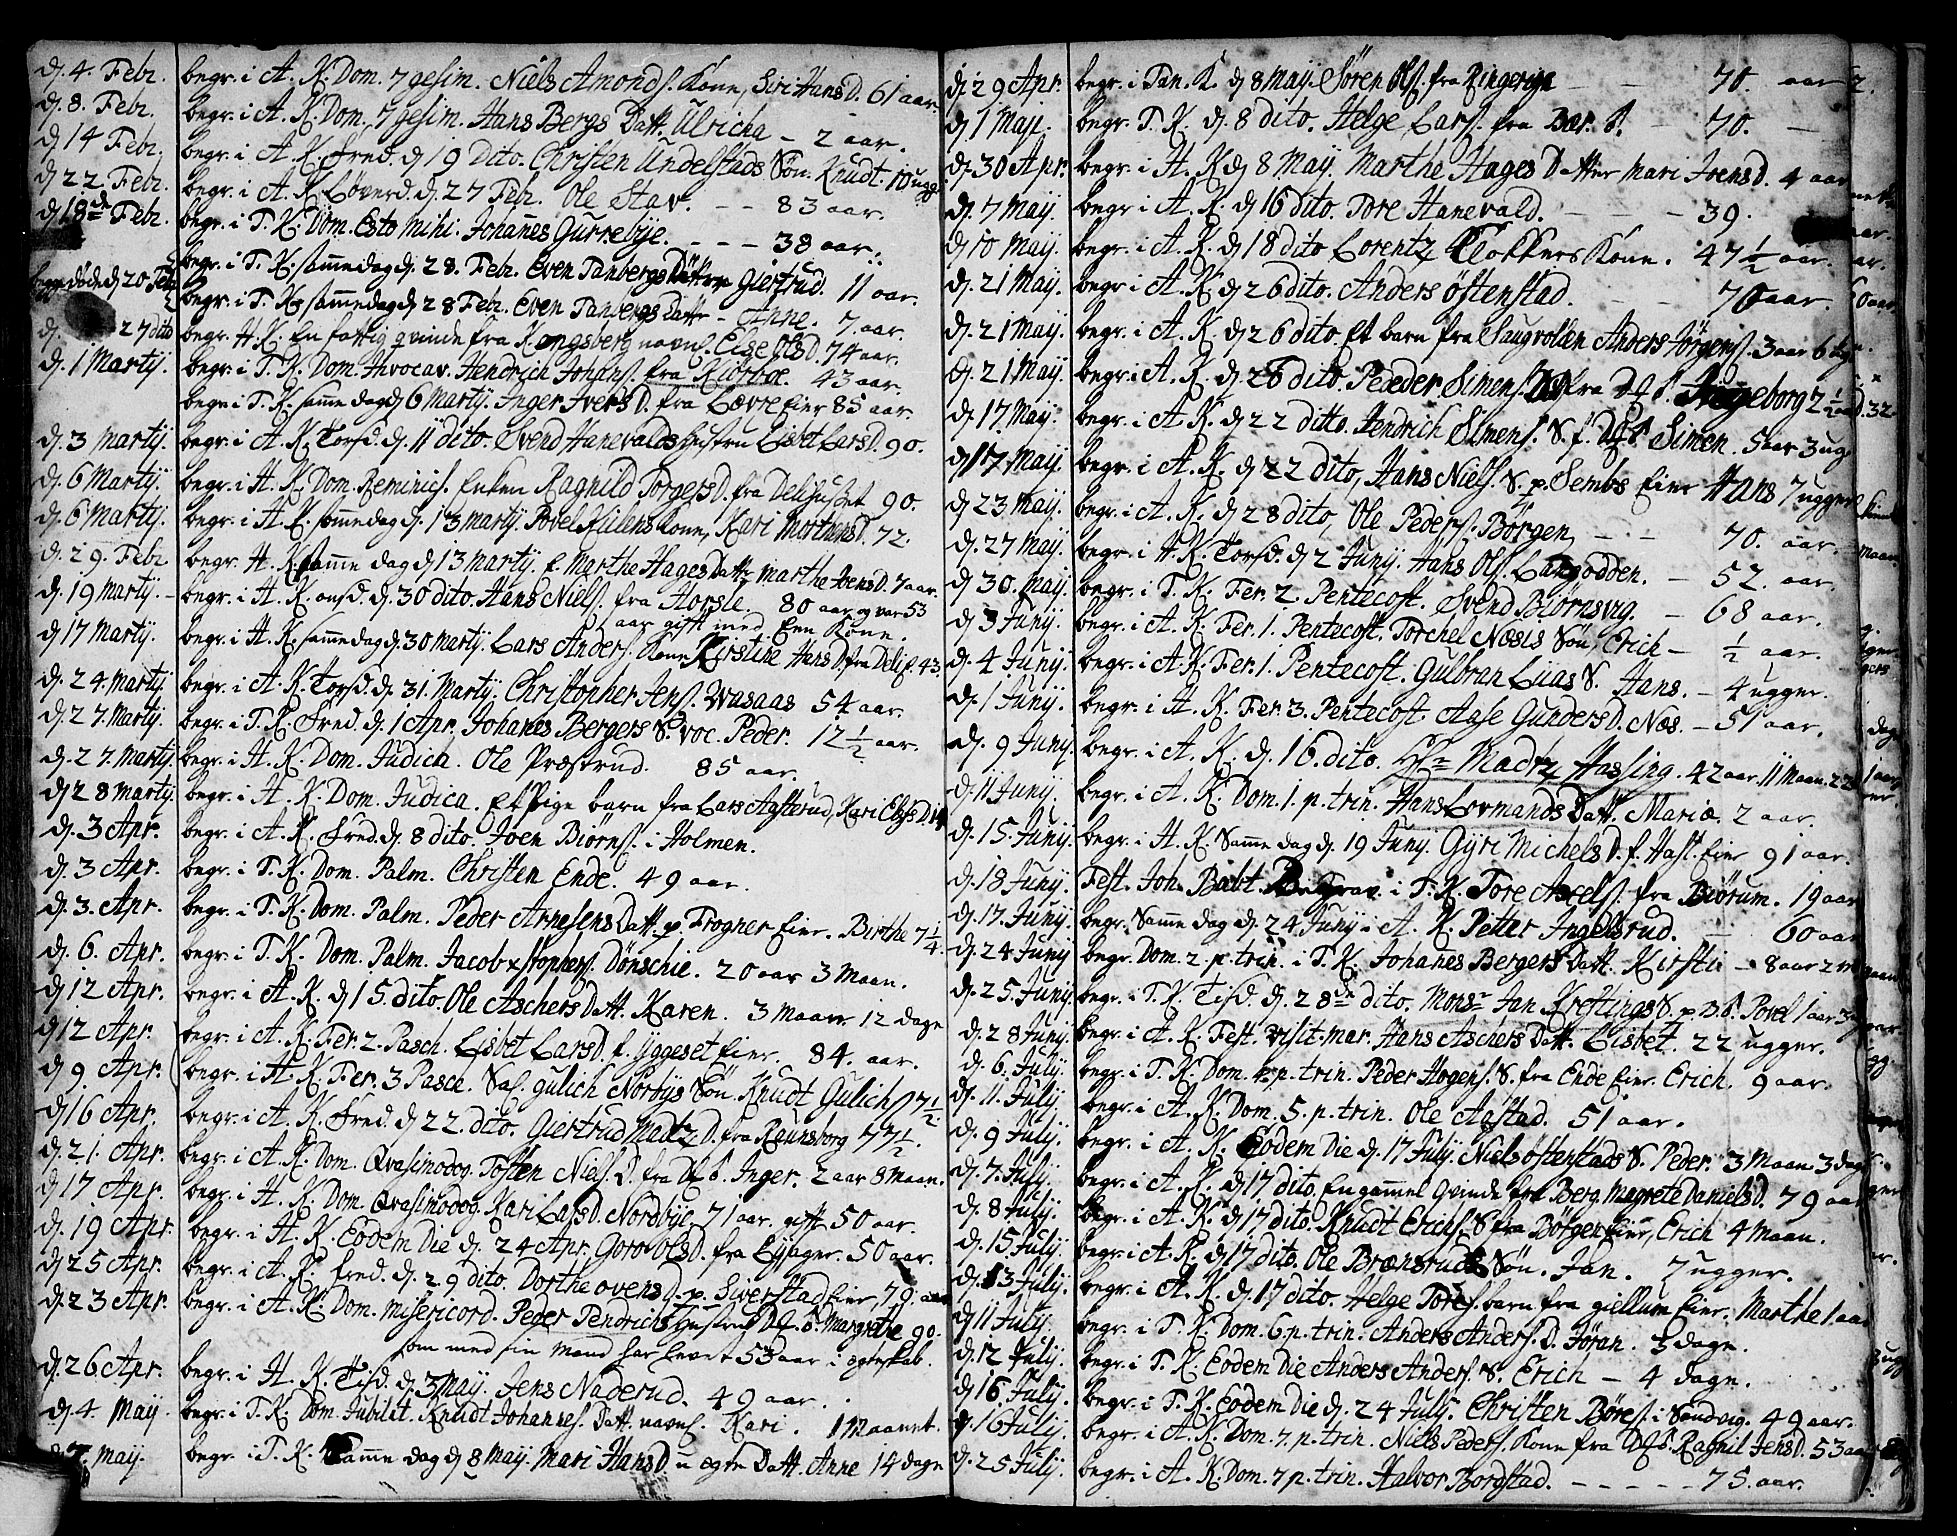 d. 4. Febr. begr. i A. K. Dom. 7gesim. Niels Amonds. Kone, Siri HansD. 61 aar.
d. 8. Febr. begr. i A. K. Dom. 7gesim. Hans Bergs Datt. Ulricha - 2 aar.
d. 14 Febr. begr. i A. K. Fred. d. 19 Dito. Christen Undelstads Søn Knudt. 10 ugg
d. 22. Febr. begr. i A. K. Løverd. d. 27 Feb. Ole Stav. - - 83 aar.
d. 18de Febr. begr. i T. K. Dom. Esto Mihi. Johanes Gurrebye. - - - 38 aar.
døde d. 20 Febr. begr. i T. K. samme dag d. 28. Febr. Even Tanbergs Datter Giertrud. 11 aar.
begr. i T. K. samme dag d. 28 Febr. Even Tanbergs Datt. - Anne. 7. aar.
d. 27 dito begr. H. K. En fattig qvinde fra Kongsberg navnl. Eise OlsD. 74 aar.
d. 1 Martij. begr. i T. K. Dom. Invocav. Hendrich Johans. fra Kiørboe. 43 aar.
begr. i T. K. samme dag d. 6 Martij. Inger IversD. fra Løvre Eier 85 aar.
d. 3 Martij. begr. i A. K. Torsd. d. 11 dito. Svend Hanevalds Hustru Lisbet LarsD. 90.
d. 6 Martij. begr. i H. K. Dom. Reminis. Enken Ragnild TorgersD. fra 90.
d. 6 Martij. begr. i H. K. samme dag d. 13 Martij. Povel Kone, Kari MortensD. 72.
d. 29. Febr. begr. H. K. samme dag d. 13 Martij. f. Marthe Hages Datt. Marthe JoensD. 7 aar.
d. 19 Martij. begr. i H. K. onsd. d. 30 dito. Hans Niels. fra Horsle. 80 aar og var 53
aar gift med Een Kone.
d. 17 Martij. begr. i H. K. samme dag d. 30 Martij. Lars Anders. Kone Kirstine HansD. fra 43.
d. 24. Martij. begr. i A. K. Torsd. d. 31. Martij. Christopher Jens. Wasaas 54 aar.
d. 27. Martij. begr. i T. K. Fred. d. 1 Apr. Johanes Bergers S. voc. Peder. 12 1/2 aar.
d. 27. Martij. begr. i H. K. Dom. Judica. Ole Præstrud. 85 aar.
d. 28 Martij. begr. i H. K. Dom. Judica. Et Pige barn fra Lars Aasterud, Kari
d. 3 Apr. begr. i A. K. Fred. d. 8 dito. Joen Biørns. i Holmen.
d. 3 Apr. begr. i T. K. Dom. Palm. Christen Ende. 49 aar.
d. 3. Apr. begr. i T. K. Dom. Palm. Peder Arnesens Datt. p. Frogner Eier. Birthe 7 1/4.
d. 6. Apr. begr. i T. K. Dom. Palm. Jacob Xstophers. Dønschie. 20 aar 3 Maan.
d. 12 Apr. begr. i A. K. d. 15. dito Ole Aschers Datt. Karen. 3 maan 12 dage
d. 12 Apr. begr. i A. K. Fer. 2. Pasch. Lisbet LarsD. f. Yggeset Eier. 84. aar.
d. 9 Apr. begr. i H. K. Fer. 3 Pasch. Sal. Gulich Norbys Søn Knudt Gulich 1/2.
d. 16 Apr. begr. i A. K. Fred. d. 22. dito. Giertrud MadzD. fra Raunsborg 77 1/2.
d. 21. Apr. begr. i A. K. Dom. Qvasimodog. Tosten Niels. D. fra Inger. 2 aar 8 Maan.
d. 17 Apr. begr. i H. K. Dom. Qvasimodog. Kari LarsD. Nordbye, 71 aar. gift 50 aar.
d. 19 Apr. begr. i H. K. Eodem Die d. 24 Apr. Goro OlsD. fra Eyager. 50 aar.
d. 25 Apr. begr. i A. K. Fred. d. 29 dito. Dorthe OvensD. p. Siverstad Eier, 79. aar
d. 23 Apr. begr. i A. K. Dom. Misericord. Peder Hendrichs Hustrue Margrethe 90.
som med sin Mand har levet 53 aar i egteskab.
d. 26 Apr. begr. i H. K. Tisd. d. 3 Maij. Jens Naderud. 49 aar.
d. 4. Maij begr. i T. K. Dom. Jubilat. Knudt Johannes. Datt. navnl. Kari. 1 Maanet.
7. Maij. begr. i T. K. Samme dag d. 8 Maij. Mari HansD. u ægte Datt. Anne 14 dage
d. 29 Apr. begr. i Tan. K. d. 8 Maij. Søren Ols. fra Ringerige - - 70. aar
d. 1 Maji. begr. T. K. d. 8 dito. Helge Lars. fra Bær. V. - 70. -
d. 30 Apr. begr. i H. K. d. 8 Maij. Marthe Hages Datter Mari JoensD. 4 aar
d. 7 Maij. begr. i A. K. d. 16 dito. Tore Hanevald. - - - 39.
d. 10 Maij. begr. i A. K. d. 18 dito Lorentz Klokkers Kone. 47 1/2 aar.
d. 21 Maij. begr. i A. K. d. 26 dito. Anders Østenstad. - - 70 aar.
d. 21 Maij. begr. i A. K. d. 26 dito. Et barn fra Saugvolen Anders Jørgens. 3 aar 6
d. 21 Maij. begr. i A. K. d. 26 dito. Peder Simens. fra Ingeborg 2 1/2
d. 17 Maij. begr. i A. K. d. 22 ditto. Hendrich Simens. S. f. Simen. 5 aar 3 ug
d. 17. Maij. begr. i A. K. d. 22 dito, Hans Niels. S. p. Sembs Eier Hans 7 ugger
d. 23 Maij. begr. i A. K. d. 28 dito, Ole Peders. Børgen, - - 70. aar.
d. 27 Maij. begr. i H. K. Torsd. d. 2 Junij. Hans Ols. Langodden. - 52. aar.
d. 30. Maij. begr. i T. K. Fer. 2. Pentecost. Svend Biørnsvig. - 68 aar.
d. 3 Junij. begr. i A. K. Fer. 1. Pentecost. Torchel Næsis Søn, Erich - 1/2 aar.
d. 4 Junij. begr. i A. K. Fer. 1. Pentecost. Gulbran Lias S. Hans. - 4 ugger.
d. 1 Junij. begr. i H. K. Fer. 3. Pentecost Aase GundersD. Næs. - 51 aar.
d. 9 Junij. begr. i A. K. d. 16. dito. Hr. Madtz Hassing. 42 aar. 11 Maan. 22
d. 11 Junij. begr. i A. K. Dom. 1. p. trin. Hans Lovmands Datt. Maria. 2 aar.
d. 15 Junij. begr. i H. K. Samme dag d. 19 Junij. Gyri MichelsD. f. Hasl. Eier 91 aar.
d. 18 Junij. Fest. Joh. Babt. Begrav. i T. K. Tore Axels. fra Biørum. 19 aar
d. 17. Junij. begr. Samme dag d. 24 Junij i A. K. Petter Ingelsrud. - 60 aar
d. 24 Junij begr. Dom. 2. p. trin. i T. K. Johanes Bergers Datt. Kirsti - 8 aar 2 m
d. 25. Junij. begr. i T. K. Tisd. d. 28de dito. Monsr. Jan Kreftings S. p. B. V. Povel 1 aar 3
d. 28 Junij. begr. i A. K. Fest. Visit. Mar. Hans Aschers Datt. Lisbet. 22 ugger.
d. 6. Julij. begr. i T. K. Dom. 4. p. trin. Peder Hogens. S. fra Ende Eier. Erich. 9 aar.
d. 11. Julij. begr. i A. K. Dom. 5. p. trin. Ole Aastad. 51 aar.
d. 9 Julij. begr. i A. K. Eodem Die d. 17 Julij. Niels Østenstads S. Peder. 3 Maan. 3 dag
d. 7. Julij. begr. i A. K. d. 17 dito. En gammel qvinde fra Berg Magrete DanielsD. 79 aar
d. 8 Julij. begr. i A. K. d. 17 dito. Knudt Erichs. S. fra Børgen Eier, Erich 4 Maan.
d. 15 Julij. begr. i A. K. d. 17 dito. Ole Brænsruds Søn. Jan. 7 ugger.
d. 13 Julij. begr. i A. K. d. 17 dito. Helge Tores. barn fra Giellum Eier. Marthe 1 aar
d. 11 Julij. begr. i T. K. Dom. 6. p. trin. Anders Anders. D. Jøran. 3 dage.
d. 12 Julij. begr. i T. K. Eodem Die Anders Anders. S. Erich - 4 dage.
d. 16. Julij. begr. i T. K. Eodem Die d. 24 Julij. Christen Børes. i Sandvig. 49 aar.
d. 16 Julij. begr. i A. K. Dom. 7. p. trin. Niels Peders. Kone fra Ragnil JensD. 53 aar
d. 25 Julij. begr. i A. K. Dom. 7 p. trin. Halvor Bordstad. - - - - - 75. aar.